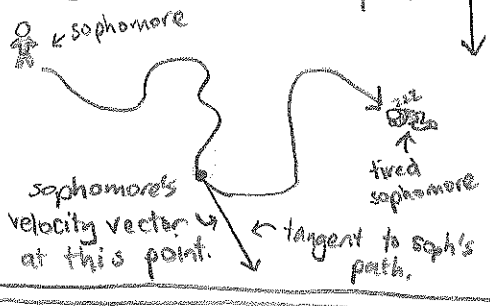 sophomore
zzz
tired
sophomore
sophomore's
velocity vector
at this point.
tangent to soph's
path.